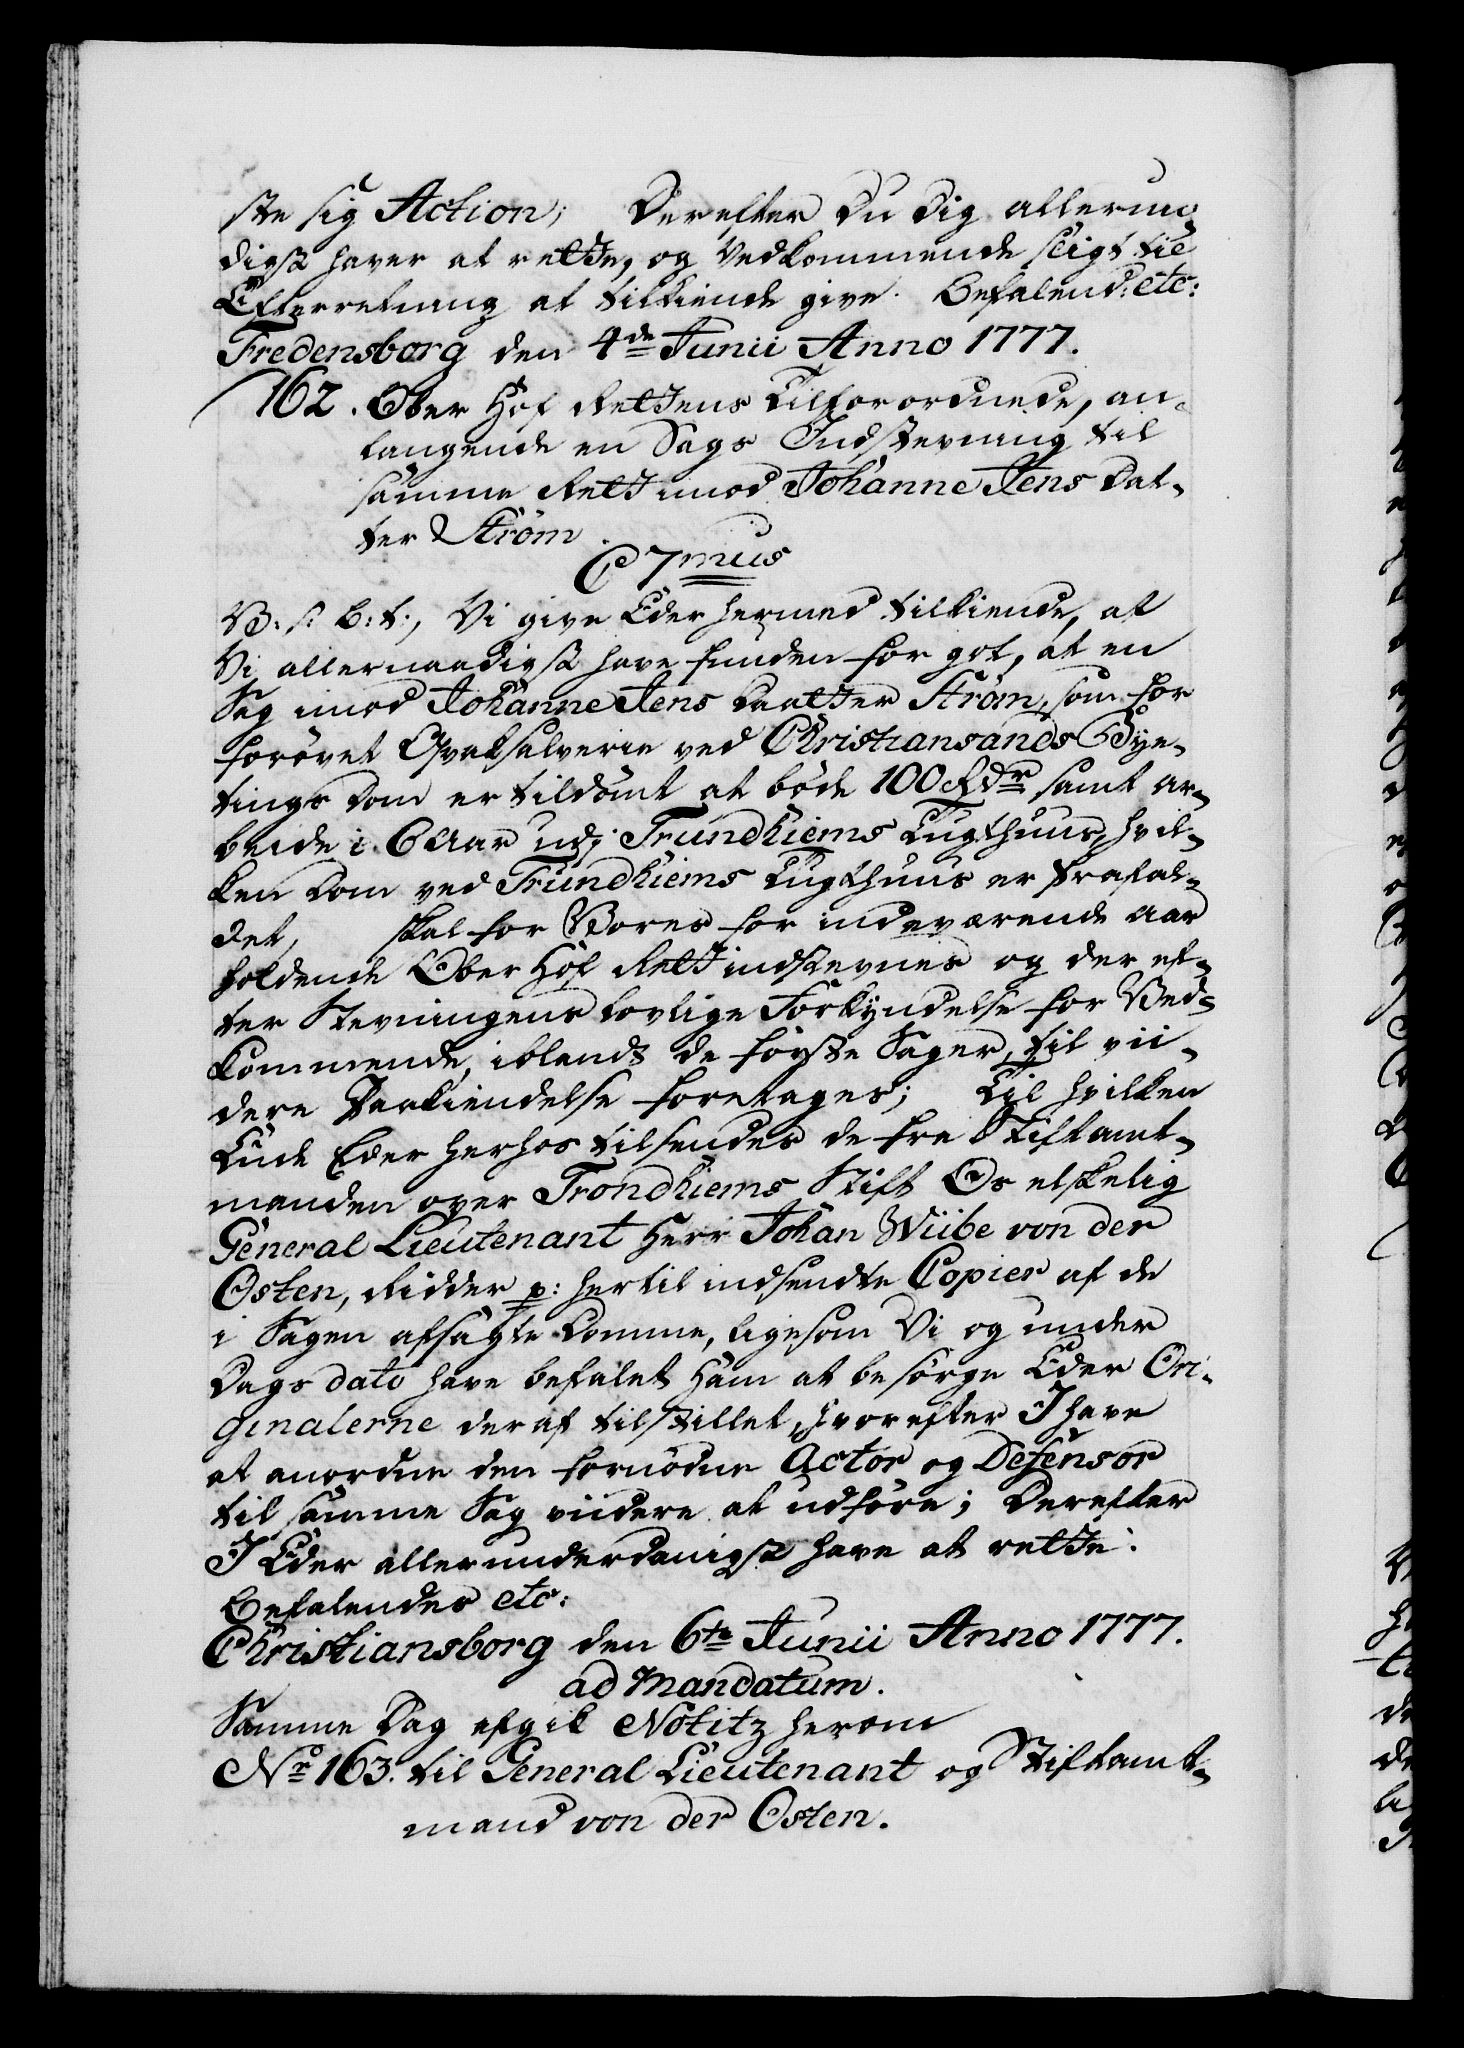 ste sig Action; Derefter Du Dig allerun¬
digst haver at rette, og Vedkommende sligt til
Efterretning at tilkiende give. Befalend: etc:
Fredensborg den 4de Junii Anno 1777.
162. Ober Hof Rettens Tilforordnede, an¬
langende en Sags Indstevning til
samme Rett imod Johanne Jens Dat¬
ter Strøm.
C 7mus
V: s: b: t:, Vi give Eder hermed tilkiende, at
Vi allernaadigst have funden for got, at en
Sag imod Johanne Jens Daatter Strøm, som for
forøvet Qvaksalverie ved Christiansands Bye¬
tings Dom er tildømt at bøde 100 Rdr samt ar¬
beide i 6 Aar udj Trundhiems Tugthuus, hvil¬
ken Dom ved Trundhiems Lugthuus er frafal¬
det, skal for Vores for indeværende Aar
holdende Ober Hof Rett indstevnes og der ef¬
ter Stevningens lovlige Forkyndelse for Ved¬
kommende, iblandt de første Sager, til vii¬
dere Paakiendelse foretages; Til hvilken
Ende Eder herhos tilsendes de fra Stiftamt¬
manden over Trondhiems Stift Os elskelig
General Lieutenant Herr Johan Wiibe von der
Osten, Ridder p: hertil indsendte Copier af de
i Sagen afsagte Domme, ligesom Vi og under
Dags dato have befalet Ham at besørge Eder Ori¬
ginalerne deraf tilstillet, hvorefter I have
at anordne den fornødne Actor og Defensor
til samme Sag viidere at udføre; Derefter
I Eder allerunderdanigst have at rette.
Befalendes etc:
Christiansborg den 6te Junii Anno 1777.
ad Mandatum.
Samme Dag afgik Notitz herom
No 163. til General Lieutenant og Stiftamt¬
mand von der Osten.